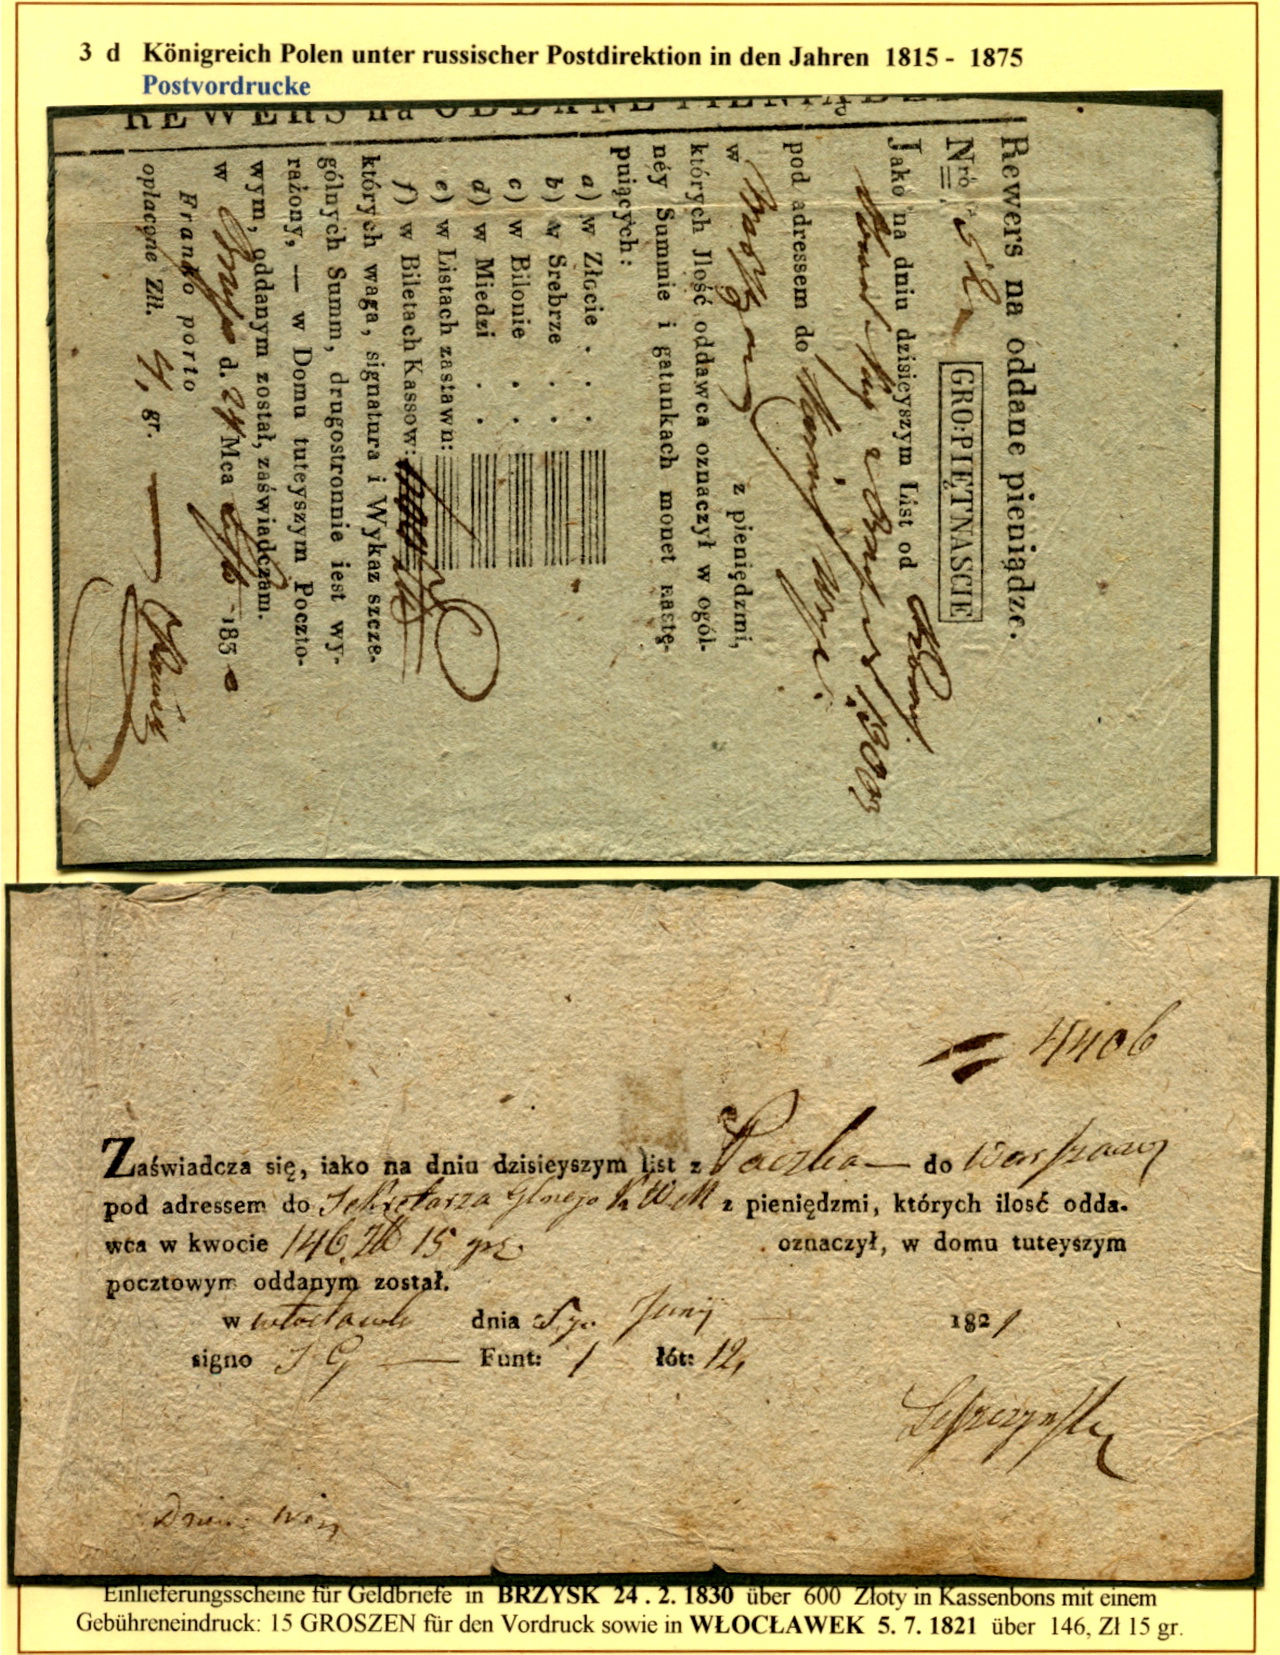 3 d Königreich Polen unter russischer Postdirektion in den Jahren 1815 - 1875
Postvordrucke
REWERS na ODDANE PIENIĄDZE
Rewers na oddane pieniądze.
Nrō GRO:PIĘTNASCIE
Jako na dniu dzisieyszym List od
pod adressem do
w z pieniędzmi,
których Jlość oddawca oznaczył w ogól-
néy Summie i gatunkach monet nastę-
puiących:
a) w Złocie . .
b) w Srebrze . .
c) w Bilonie . .
d) w Miedzi . .
e) w Listach zastawn:
f) w Biletach Kassow:
których waga, signatura i Wykaz szcze-
gólnych Summ, drugostronnie iest wy-
rażony, — w Domu tuteyszym Poczto-
wym, oddanym został, zaświadczam.
w d. 24 Mca 183
Franko porto
opłacone Złł. 4, gr. —
4406
Zaświadcza się, iako na dniu dzisieyszym list z Paczka — do Warszawy
pod adressem do Sekretarza z pieniędzmi, których ilosć odda-
wca w kwocie 146 Zł 15 gr. oznaczył, w domu tuteyszym
pocztowym oddanym został.
w dnia 5 Junij 1821
signo J G — Funt: 1 łót: 12,
Einlieferungsscheine für Geldbriefe in BRZYSK 24 . 2. 1830 über 600 Złoty in Kassenbons mit einem
Gebühreneindruck: 15 GROSZEN für den Vordruck sowie in WŁOCŁAWEK 5. 7. 1821 über 146, Zł 15 gr.